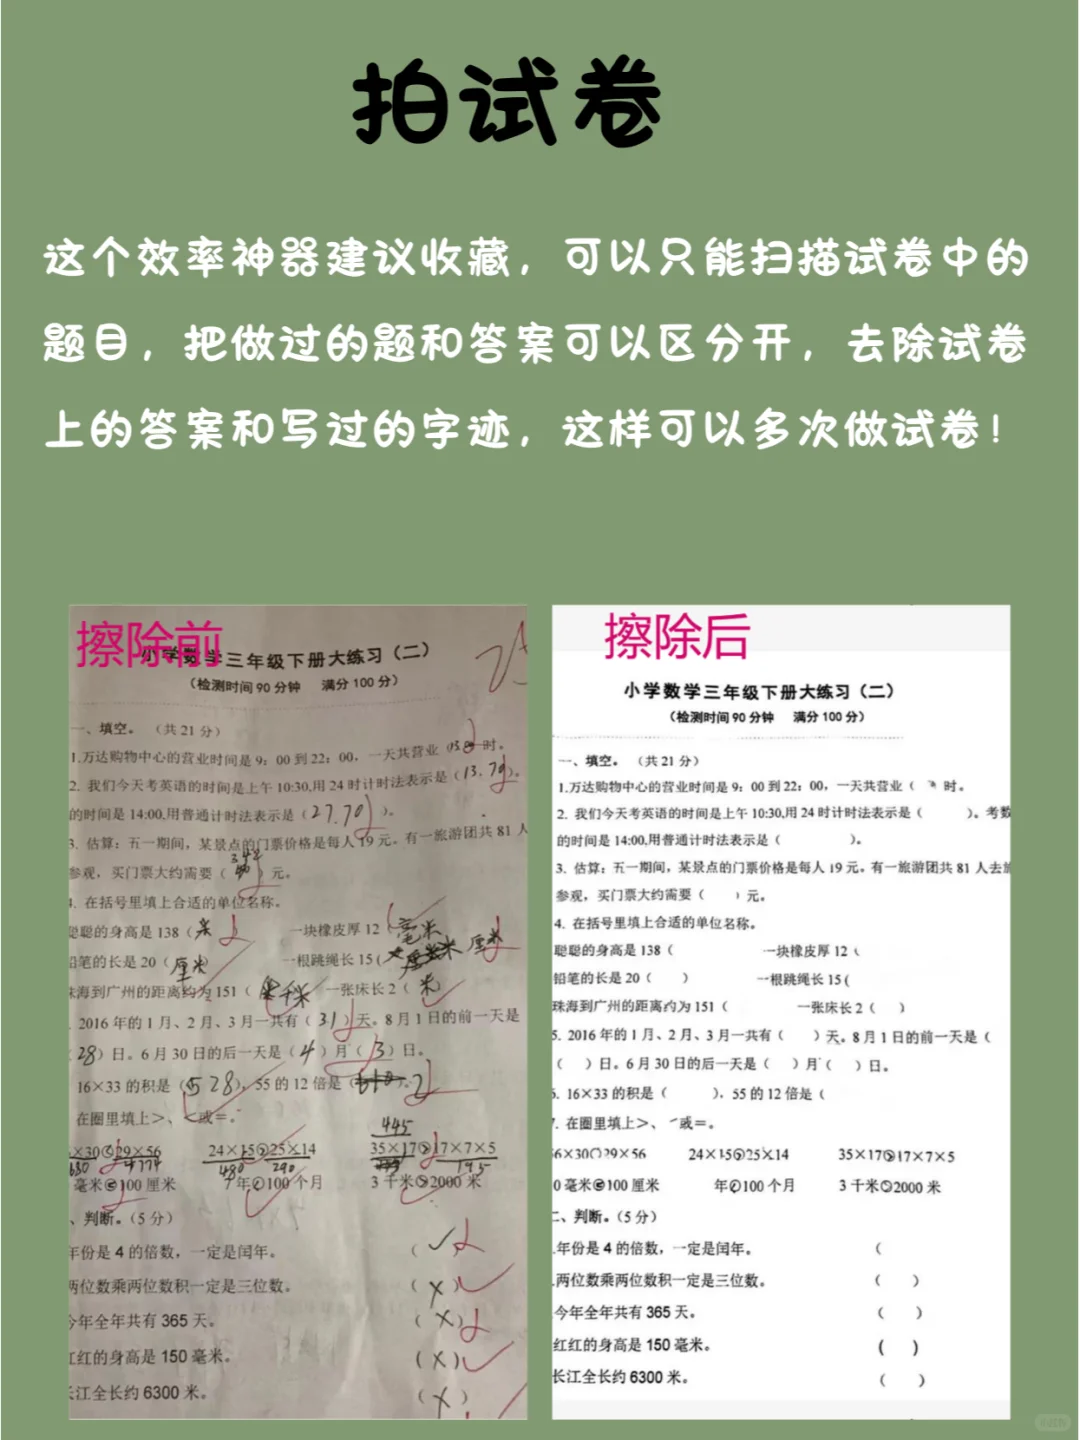 拍试卷
这个效率神器建议收藏，可以只能扫描试卷中的
题目，把做过的题和答案可以区分开，去除试卷
上的答案和写过的字迹，这样可以多次做试卷！
擦除前
小学数学三年级下册大练习（二）
（检测时间90分钟 满分100分）
一、填空。（共21分）
1.万达购物中心的营业时间是9：00到22：00，一天共营业（ 时。
2. 我们今天考英语的时间是上午10:30,用24时计时法表示是（13.70）。
的时间是14:00,用普通计时法表示是（27.70）。
3. 估算：五一期间，某景点的门票价格是每人19元。有一旅游团共81人
参观，买门票大约需要（ ）元。
4. 在括号里填上合适的单位名称。
聪聪的身高是138（米 一块橡皮厚12（毫米
铅笔的长是20（厘米） 一根跳绳长15（ 厘米
珠海到广州的距离约为151（ 千米 一张床长2（米
2016年的1月、2月、3月一共有（31）天。8月1日的前一天是
（28）日。6月30日的后一天是（4）月（3）日。
16×33的积是（528），55的12倍是（ ）。2
在圈里填上>、<或=。
445
×30 29×56 24×15 25×14 35×17 17×7×5
4774 480 290 195
毫米 100厘米 年 100个月 3千米 2000米
、判断。（5分）
年份是4的倍数，一定是闰年。 （✓
两位数乘两位数积一定是三位数。 （×）
今年全年共有365天。 （×）
红红的身高是150毫米。 （×）
长江全长约6300米。 （×）
擦除后
小学数学三年级下册大练习（二）
（检测时间90分钟 满分100分）
一、填空。（共21分）
1.万达购物中心的营业时间是9：00到22：00，一天共营业（ 时。
2. 我们今天考英语的时间是上午10:30,用24时计时法表示是（ ）。考数
的时间是14:00,用普通计时法表示是（ ）。
3. 估算：五一期间，某景点的门票价格是每人19元。有一旅游团共81人去
参观，买门票大约需要（ ）元。
4. 在括号里填上合适的单位名称。
聪聪的身高是138（ 一块橡皮厚12（
铅笔的长是20（ ） 一根跳绳长15（
珠海到广州的距离约为151（ 一张床长2（ ）
5. 2016年的1月、2月、3月一共有（ ）天。8月1日的前一天是（
（ ）日。6月30日的后一天是（ ）月（ ）日。
6. 16×33的积是（ ），55的12倍是（
7. 在圈里填上>、<或=。
6×30 29×56 24×15 25×14 35×17 17×7×5
0毫米 100厘米 年 100个月 3千米 2000米
二、判断。（5分）
年份是4的倍数，一定是闰年。 （
两位数乘两位数积一定是三位数。 （ ）
今年全年共有365天。 （ ）
红红的身高是150毫米。 （ ）
长江全长约6300米。 （ ）